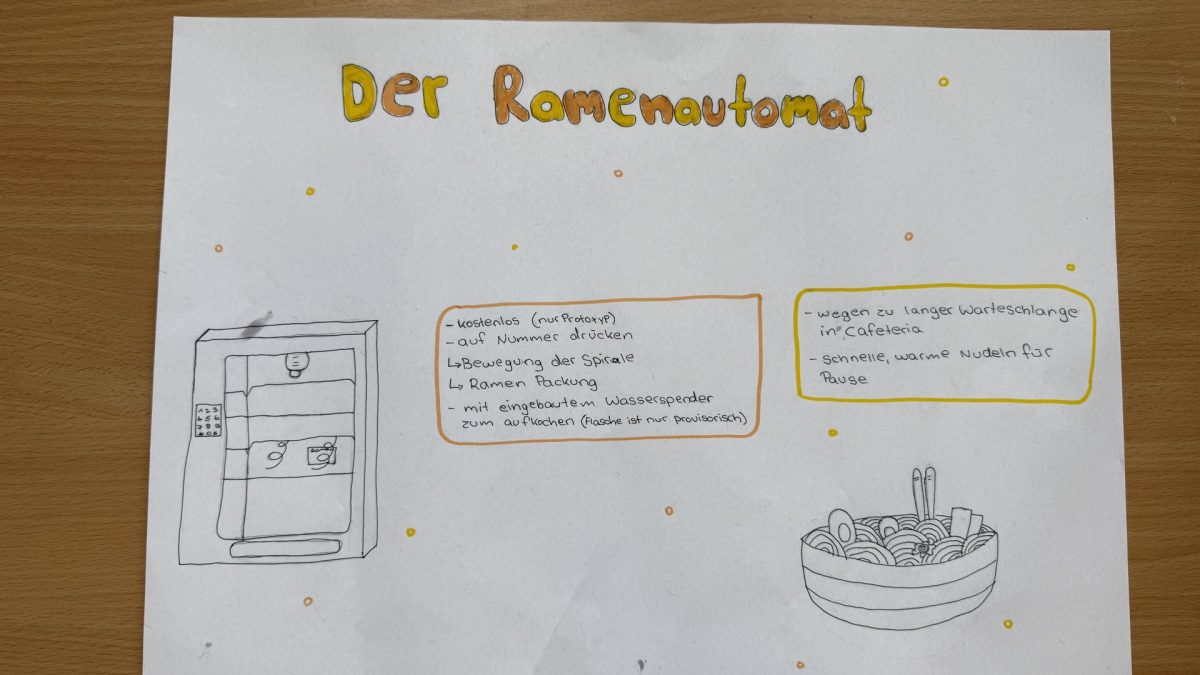 Der Ramenautomat
- kostenlos (nur Prototyp)
- auf Nummer drücken
↳ Bewegung der Spirale
↳ Ramen Packung
- mit eingebautem Wasserspender
zum aufkochen (Flasche ist nur provisorisch)
- wegen zu langer Warteschlange
in Cafeteria
- schnelle, warme Nudeln für
Pause
1 2 3
4 5 6
7 8 9